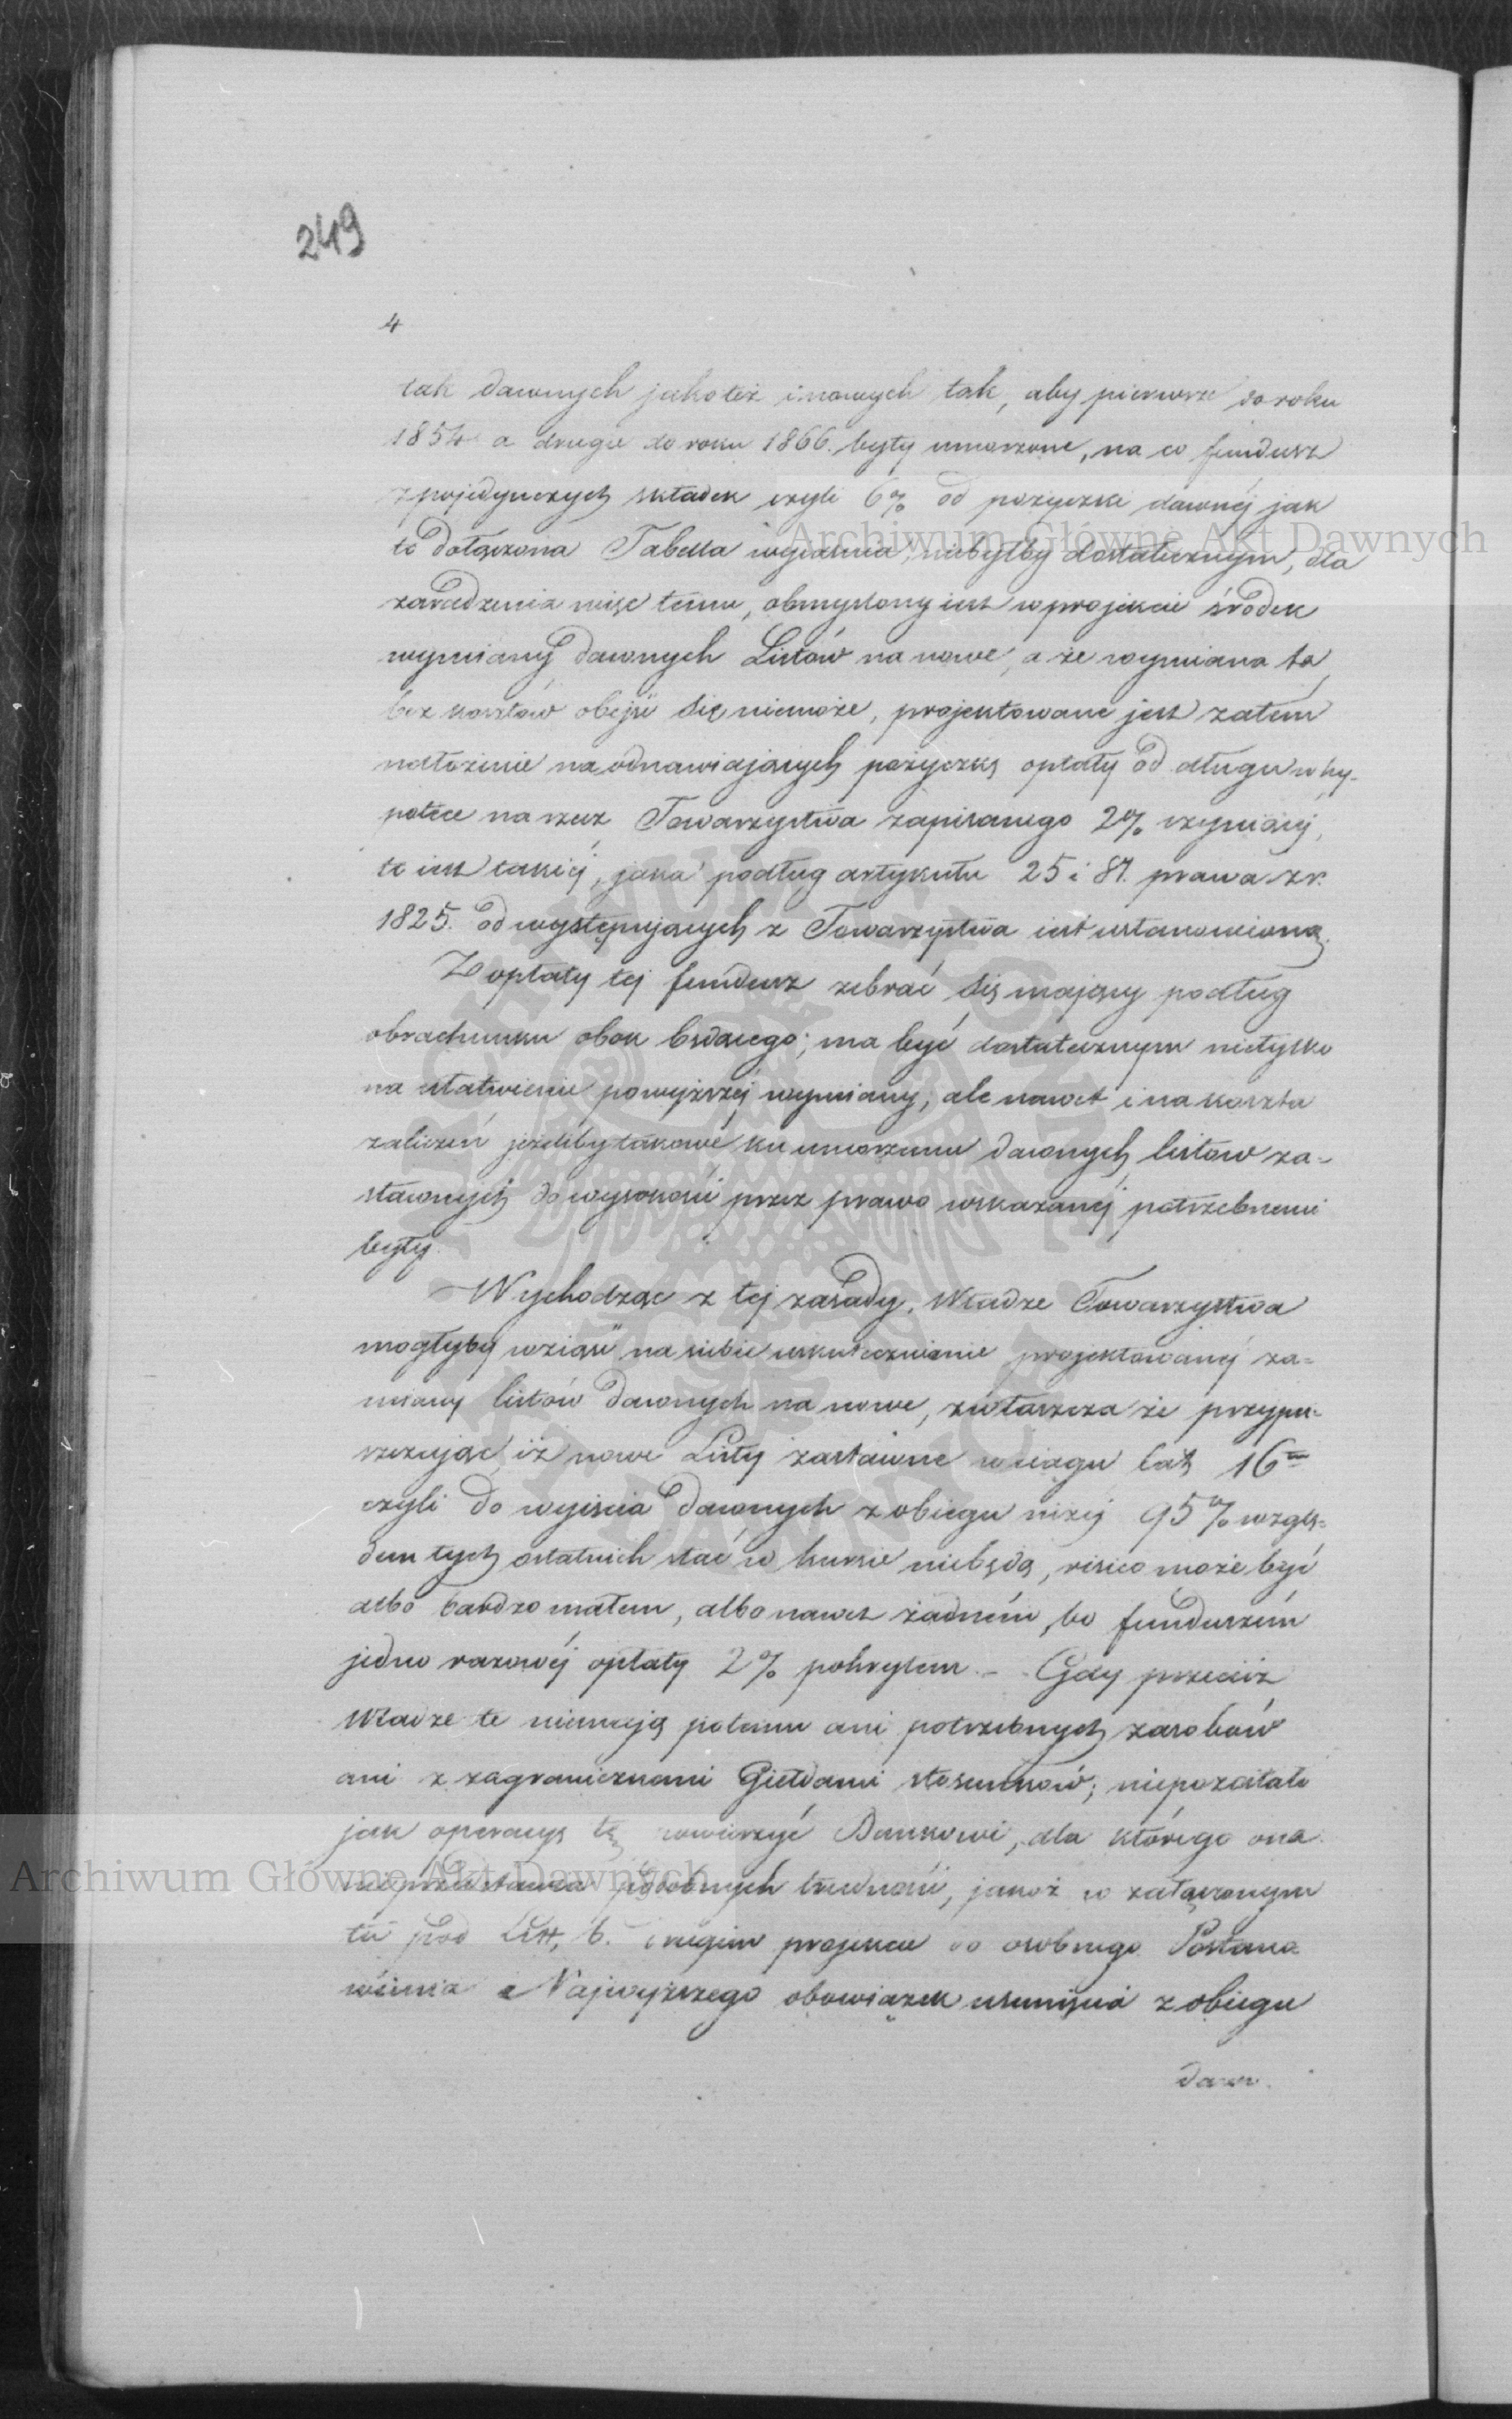 249
4
tak dawnych jakoteż i nowych tak, aby pierwsze do roku
1854 a drugie do roku 1866. były umorzone, na co fundusz
z pojedynczych składek czyli 6% od pożyczki dawnéj jak
to dołączona Tabella wyjaśnia, niebyłby dostatecznym, dla
zaradzenia więc temu, obmyślony iest w projekcie środek
wymiany dawnych Listów na nowe, a że wymiana ta
bez kosztów obejść się niemoże, projektowane jest zatém
nałożenie na odnawiających pożyczkę opłaty od długu w hy-
potece na rzecz Towarzystwa zapisanego 2% czyniącéj,
to iest takiéj, jaka podług artykułu 25 i 87. prawa z r.
1825. od występujących z Towarzystwa iest ustanowioną.
Z opłaty téj fundusz zebrać się mający podług
obrachunku obok będącego; ma być dostatecznym nietylko
na ułatwienie powyższéj wymiany, ale nawet i na koszta
zaliczeń jeżeliby takowe ku umorzeniu dawnych listów za-
stawnych do wysokości przez prawo wskazanéj potrzebnemi
były.
Wychodząc z téj zasady, Władze Towarzystwa
mogłyby wziąść na siebie uskutecznienie projektowanéj za-
miany listów dawnych na nowe, zwłaszcza że przypu-
szczając iż nowe Listy zastawne w ciągu lat 16tu
czyli do wyjścia dawnych z obiegu niżéj 95% wzglę-
dem tych ostatnich stać w kursie niebędą, risico może być
albo bardzo małem, albo nawet żadném, bo funduszém
jedno razowéj opłaty 2% pokrytem. - Gdy przecież
Władze te niemają potemu ani potrzebnych zasobów
ani z zagranicznemi Giełdami stosunków; niepozostało
jak operacyę tę powierzyć Bankowi, dla którego ona
nieprzedstawia podobnych trudności, jakoż w załączonym
tu pod Litt. b. drugim projekcie do osobnego Postano-
wienia Najwyższego obowiązek usunięcia z obiegu
dawn.
Archiwum Główne Akt Dawnych
Archiwum Główne Akt Dawnych